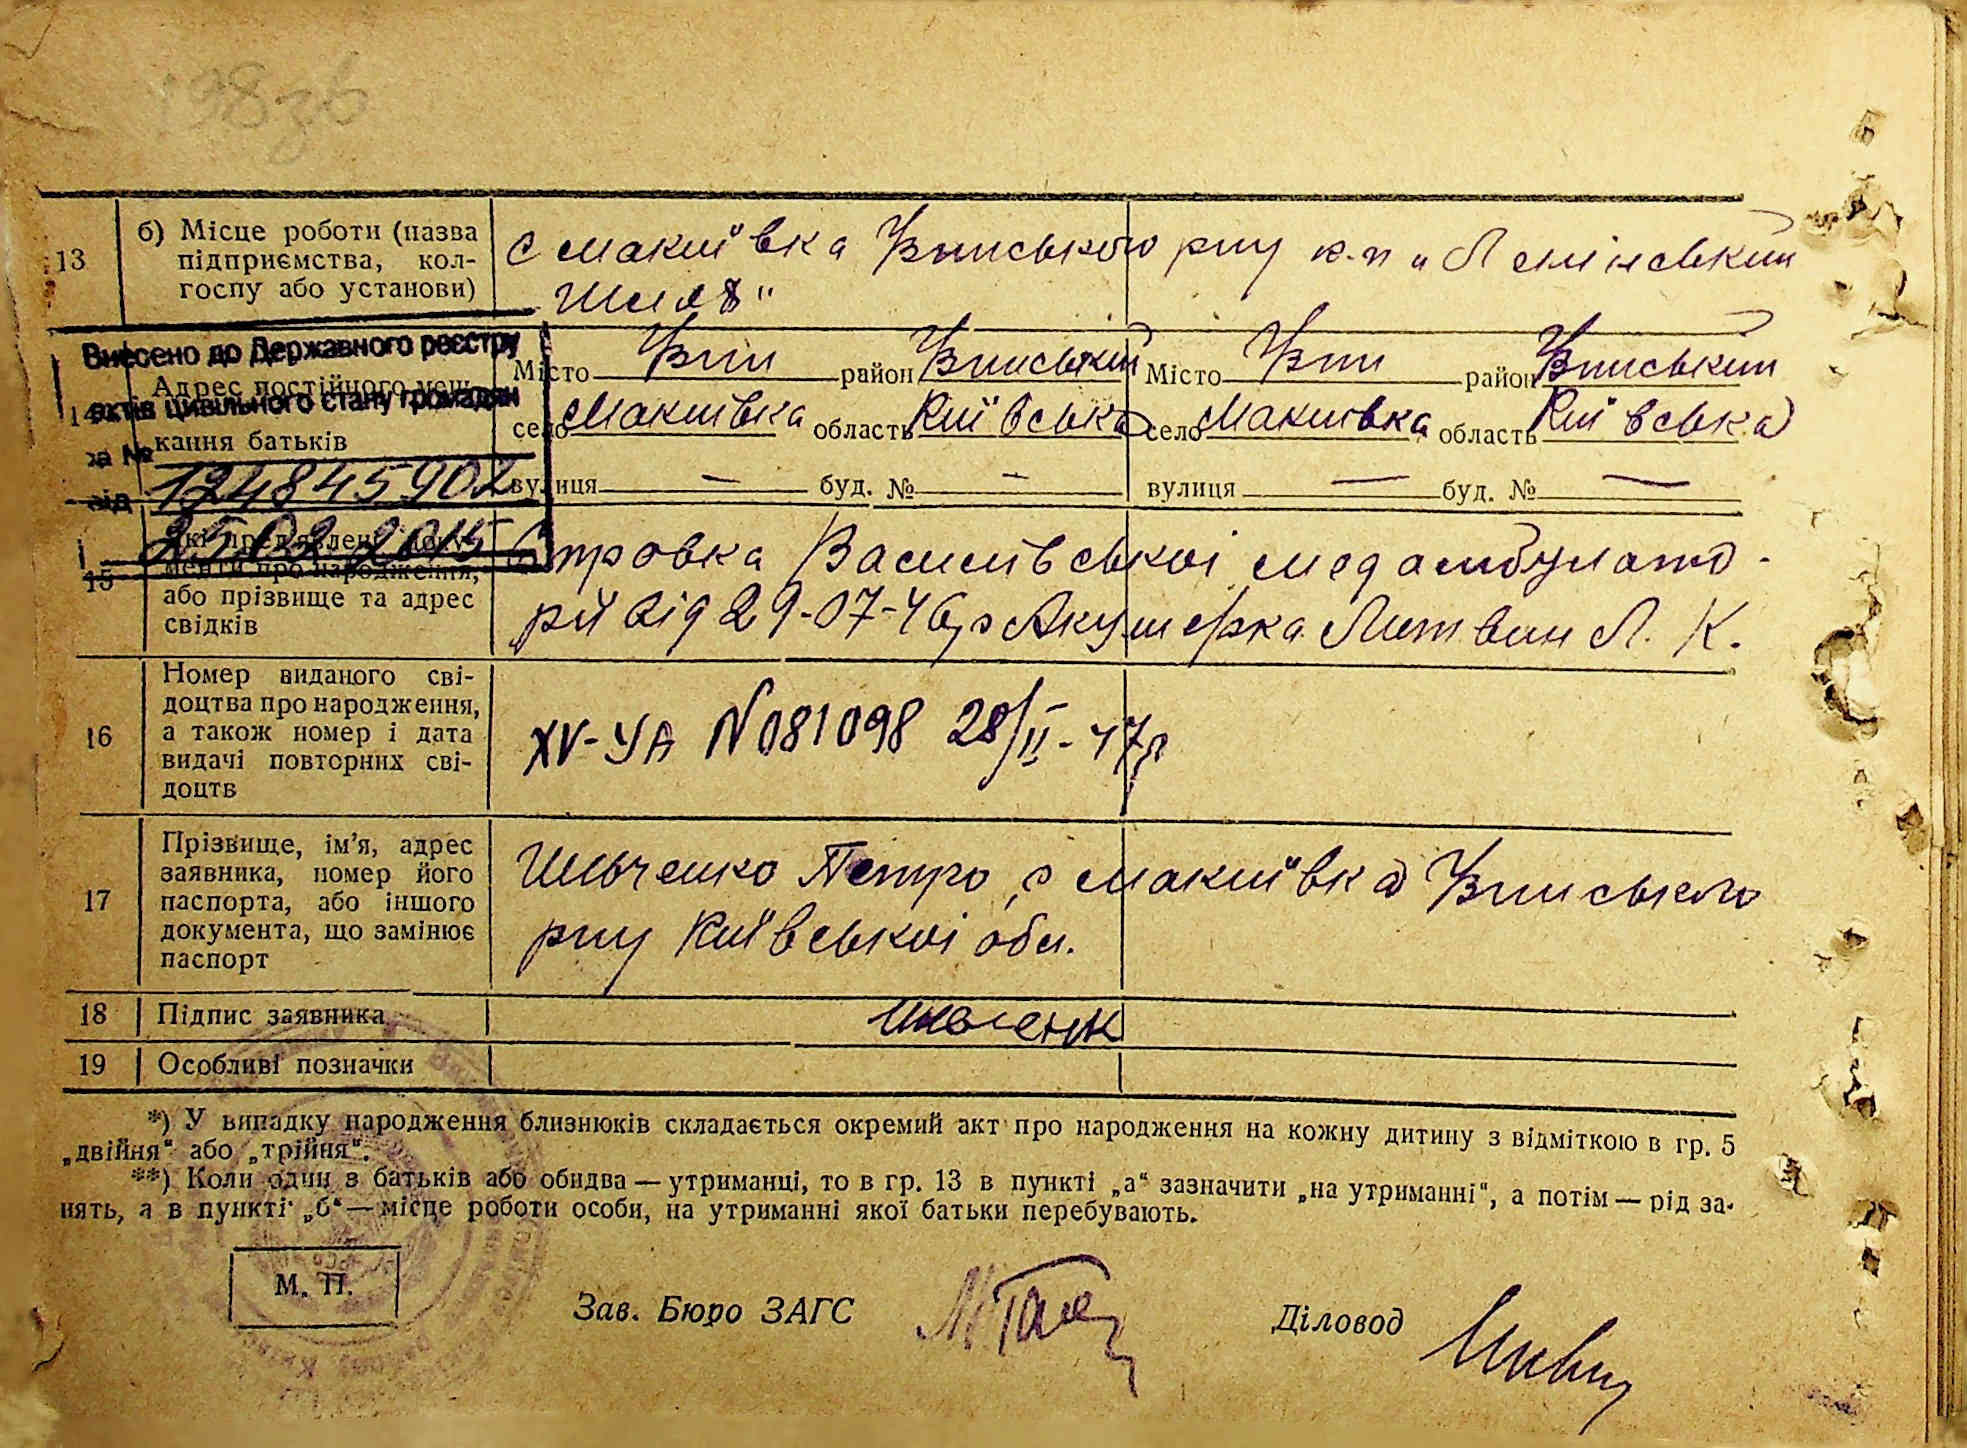 198зв
13
б) Місце роботи (назва
підприємства, кол-
госпу або установи)
с Макиївка Узинського р-ну к-п „Ленінський
Шлях"
Внесено до Державного реєстру
актів цивільного стану громадян
за №
124845902
від
25.02.2015
14
Адрес постійного меш-
кання батьків
Місто Узин район Узинський Місто Узин район Узинський
село Макиївка область Київська село Макиївка область Київська
вулиця — буд. № — вулиця — буд. № —
15
Які пред'явлені доку-
менти про народження,
або прізвище та адрес
свідків
Справка Василівської медамбулато-
рії від 29-07-46 р Акушерка Литвин Л. К.
16
Номер виданого сві-
доцтва про народження,
а також номер і дата
видачі повторних сві-
доцтв
XV-УА №081098 28/II-47р
17
Прізвище, ім'я, адрес
заявника, номер його
паспорта, або іншого
документа, що замінює
паспорт
Ільченко Петро, с Макиївка Узинського
р-ну Київської обл.
18 Підпис заявника
19 Особливі позначки
*) У випадку народження близнюків складається окремий акт про народження на кожну дитину з відміткою в гр. 5
„двійня" або „трійня".
**) Коли один з батьків або обидва — утриманці, то в гр. 13 в пункті „а" зазначити „на утриманні", а потім — рід за-
нять, а в пункті „б" — місце роботи особи, на утриманні якої батьки перебувають.
М. П.
Зав. Бюро ЗАГС
Діловод